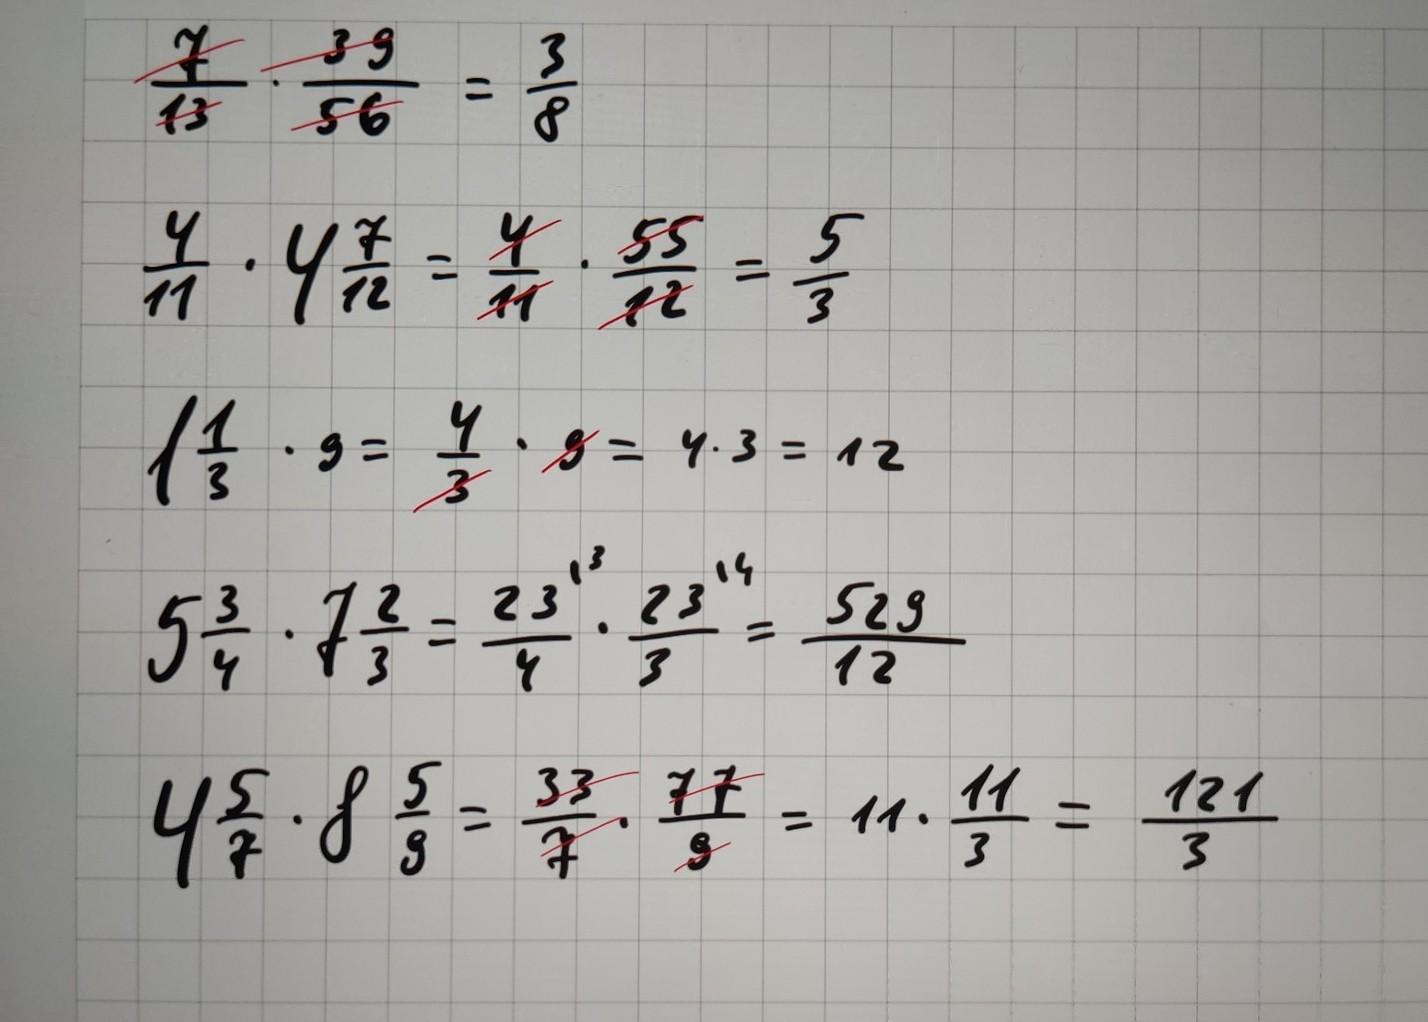 7/13 · 39/56 = 3/8
4/11 · 4 7/12 = 4/11 · 55/12 = 5/3
1 1/3 · 9 = 4/3 · 9 = 4·3 = 12
5 3/4 · 7 2/3 = 23/4 ^{13} · 23/3 ^{14} = 529/12
4 5/7 · 8 5/9 = 33/7 · 77/9 = 11 · 11/3 = 121/3